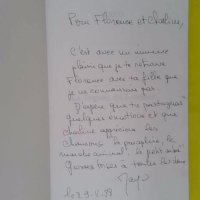 Pour Florence et Charline,
C'est avec un immense
plaisir que je te retrouve
Florence avec ta fille que
je ne connaissais pas
J'espère que tu partageras
quelques émotions et que
Charline appréciera les
chansons le parapluie, le
animal, le petit
à toutes les deux